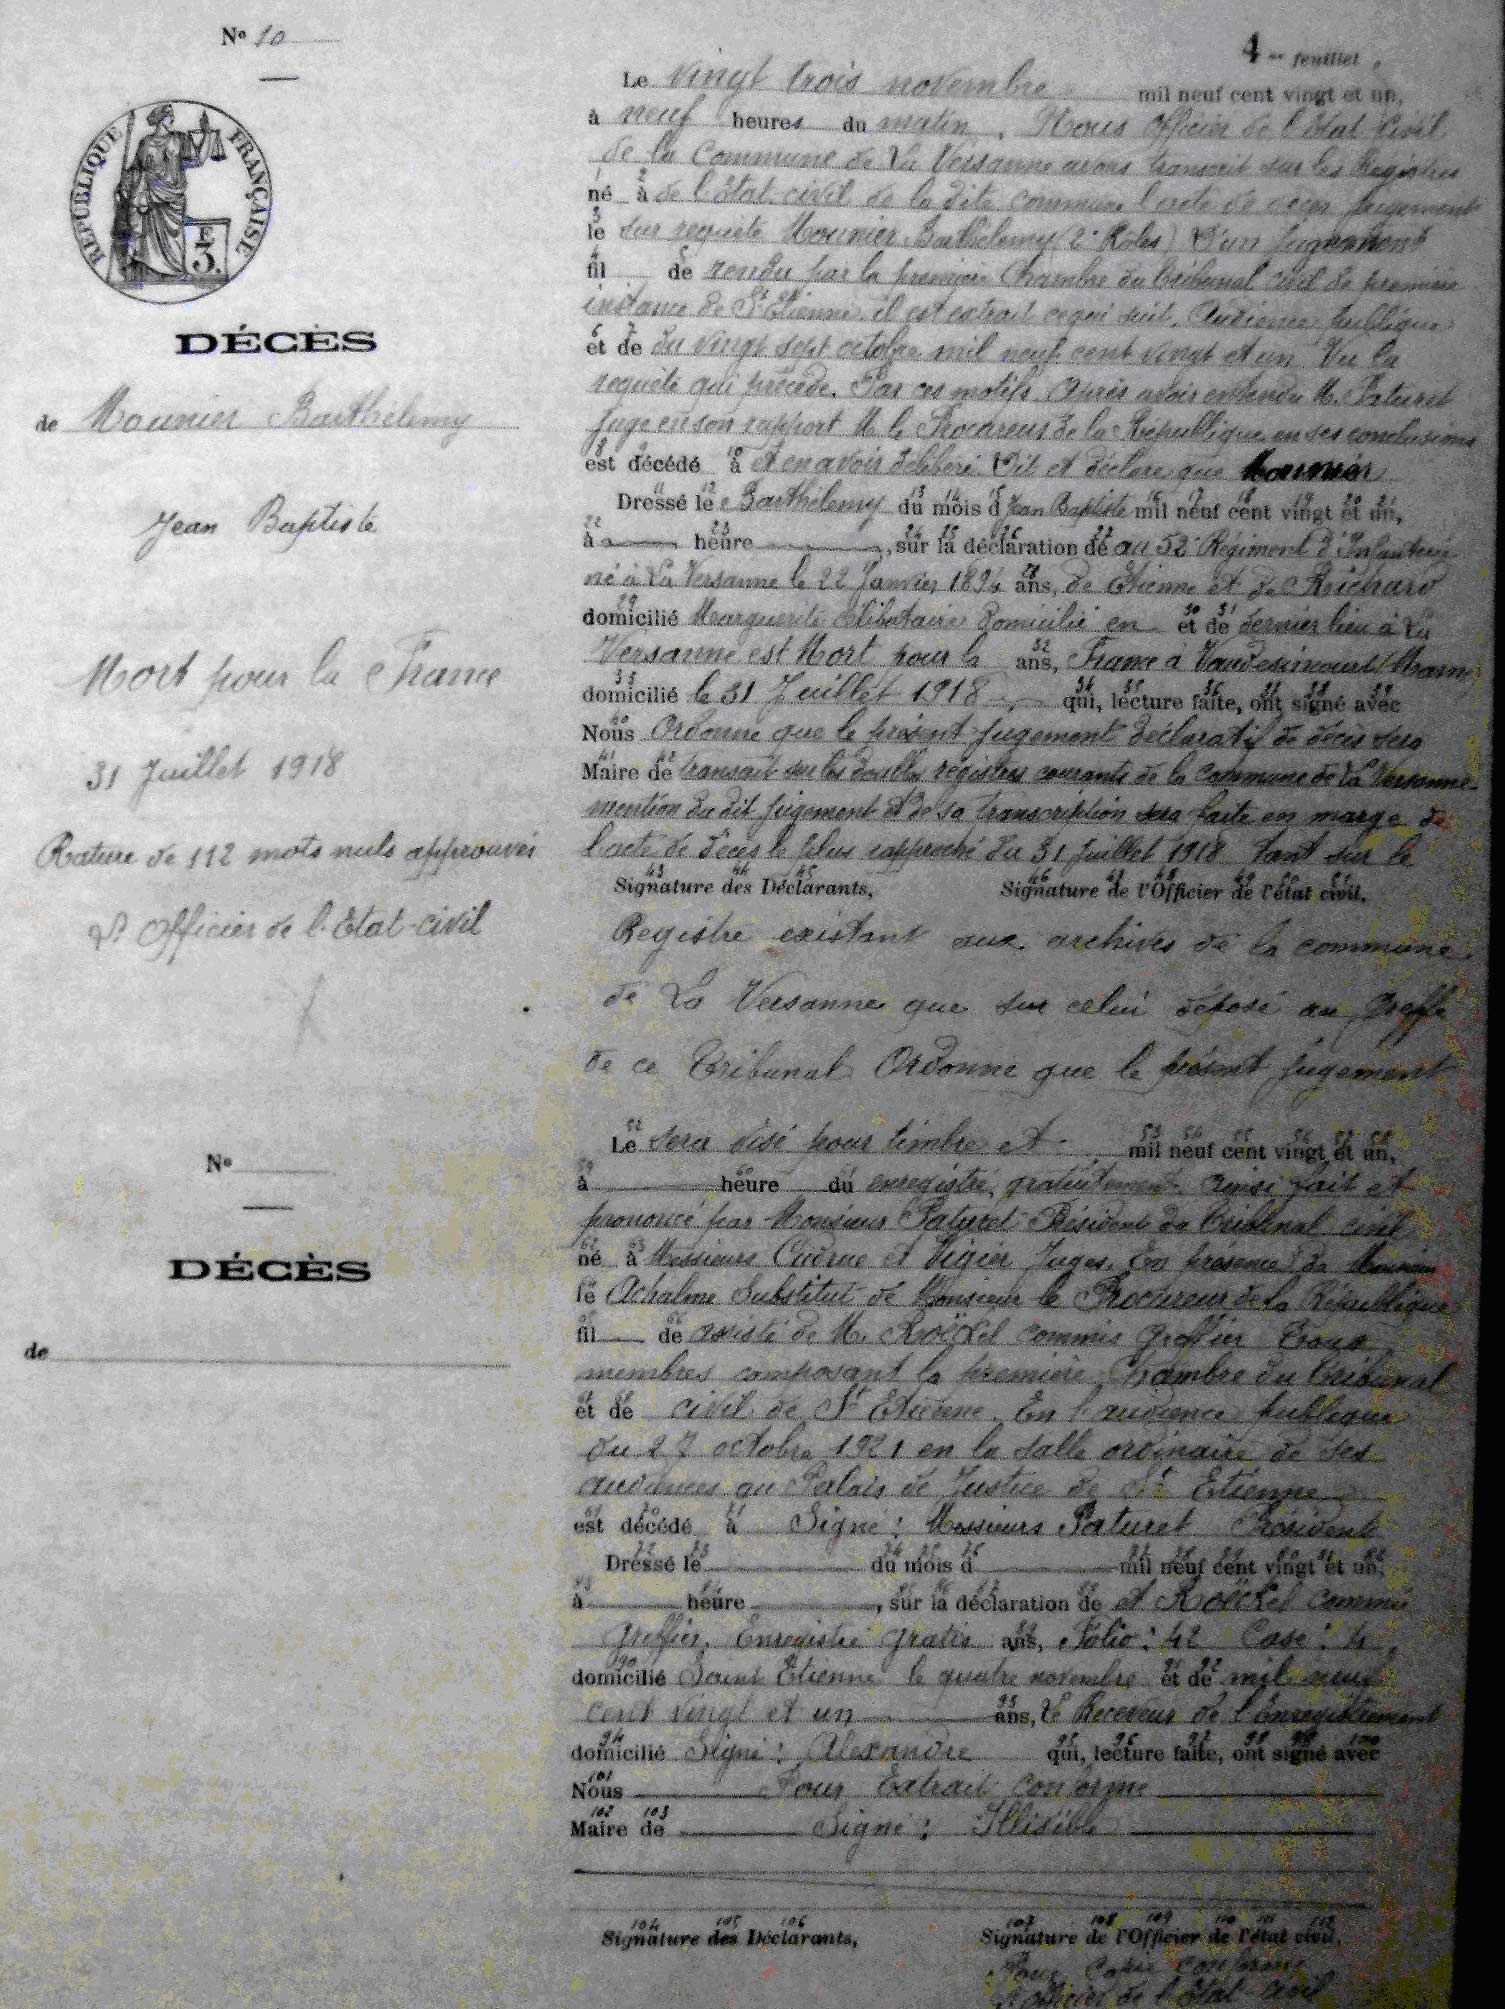 No 10
RÉPUBLIQUE FRANÇAISE
E
3.
DÉCÈS
de Mounier Barthélemy
Jean Baptiste
Mort pour la France
31 Juillet 1918
Rature de 112 mots nuls approuvés
L'Officier de l'Etat-civil
4 feuillet
Le vingt trois novembre mil neuf cent vingt et un,
à neuf heures du matin. Nous Officier de l'Etat Civil
de la Commune de La Versanne avons transcrit sur les Registres
1 2
né à de l'Etat-civil de la dite commune l'acte de jugement
3
le sur requête Mounier Barthélemy (2e Rôles) D'un jugement
4 5
fil de rendu par la première Chambre du Tribunal civil de première
instance de St Etienne, il est extrait ce qui suit. Audience publique
6 7
et de du vingt sept octobre mil neuf cent vingt et un Vu la
requête qui précède. Par ces motifs. Après avoir entendu M. Paturet
Juge en son rapport M. le Procureur de la République en ses conclusions
8 9 10
est décédé à et en avoir délibéré Dit et déclare que Mounier
11 12 13 14 15 16 17 18 19 20 21
Dressé le Barthélemy du mois d Jean Baptiste mil neuf cent vingt et un,
22 23 24 25 26 27
à heure , sur la déclaration de au 52e Régiment d'Infanterie
28
né à La Versanne le 22 Janvier 1894 ans, de Etienne et de Richard
29 30 31
domicilié Marguerite célibataire domicilié en et de dernier lieu à La
32
Versanne est Mort pour la ans, France à Vaudesincourt (Marne)
33 34 35 36 37 38 39
domicilié le 31 Juillet 1918 qui, lecture faite, ont signé avec
40
Nous Ordonne que le présent jugement déclaratif de décès sera
41 42
Maire de transcrit sur les doubles registres courants de la commune de La Versanne
mention du dit jugement et de sa transcription sera faite en marge de
l'acte de décès le plus rapproché du 31 Juillet 1918 tant sur le
43 44 45 46 47 48 49 50 51
Signature des Déclarants, Signature de l'Officier de l'état civil.
Registre existant aux archives de la commune
de La Versanne que sur celui déposé au greffe
de ce Tribunal Ordonne que le présent jugement
52 53 54 55 56 57 58
Le sera visé pour timbre et mil neuf cent vingt et un,
59 60 61
à heure du enregistré gratuitement. Ainsi fait et
prononcé par Monsieur Paturet Président du Tribunal civil
62 63
né à Messieurs et Vigier Juges. En présence de Monsieur
64
le Achalme Substitut de Monsieur le Procureur de la République
65 66
fil de assisté de M. Roëckel commis greffier Tous
membres composant la première Chambre du Tribunal
67 68
et de civil de St Etienne. En l'audience publique
du 27 octobre 1921 en la salle ordinaire de ses
audiences au Palais de Justice de St Etienne
69 70 71
est décédé à Signé : Messieurs Paturet Président
72 73 74 75 76 77 78 79 80 81 82
Dressé le du mois d mil neuf cent vingt et un,
83 84 85 86 87 88
à heure , sur la déclaration de et Roëckel commis
89
greffier. Enregistré gratis ans, Folio : 42 Case : 4
90 91 92
domicilié Saint Etienne le quatre novembre et de mil neuf
93
cent vingt et un ans, Le Receveur de l'Enregistrement
94 95 96 97 98 99 100
domicilié Signé : Alexandre qui, lecture faite, ont signé avec
101
Nous Pour Extrait conforme
102 103
Maire de Signé : Illisible
104 105 106 107 108 109 110 111 112
Signature des Déclarants, Signature de l'Officier de l'état civil.
Pour Copie conforme
L'Officier de l'Etat-civil
No
DÉCÈS
de